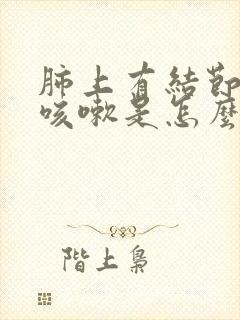 肺上有結節
咳嗽是怎麼
階上梟